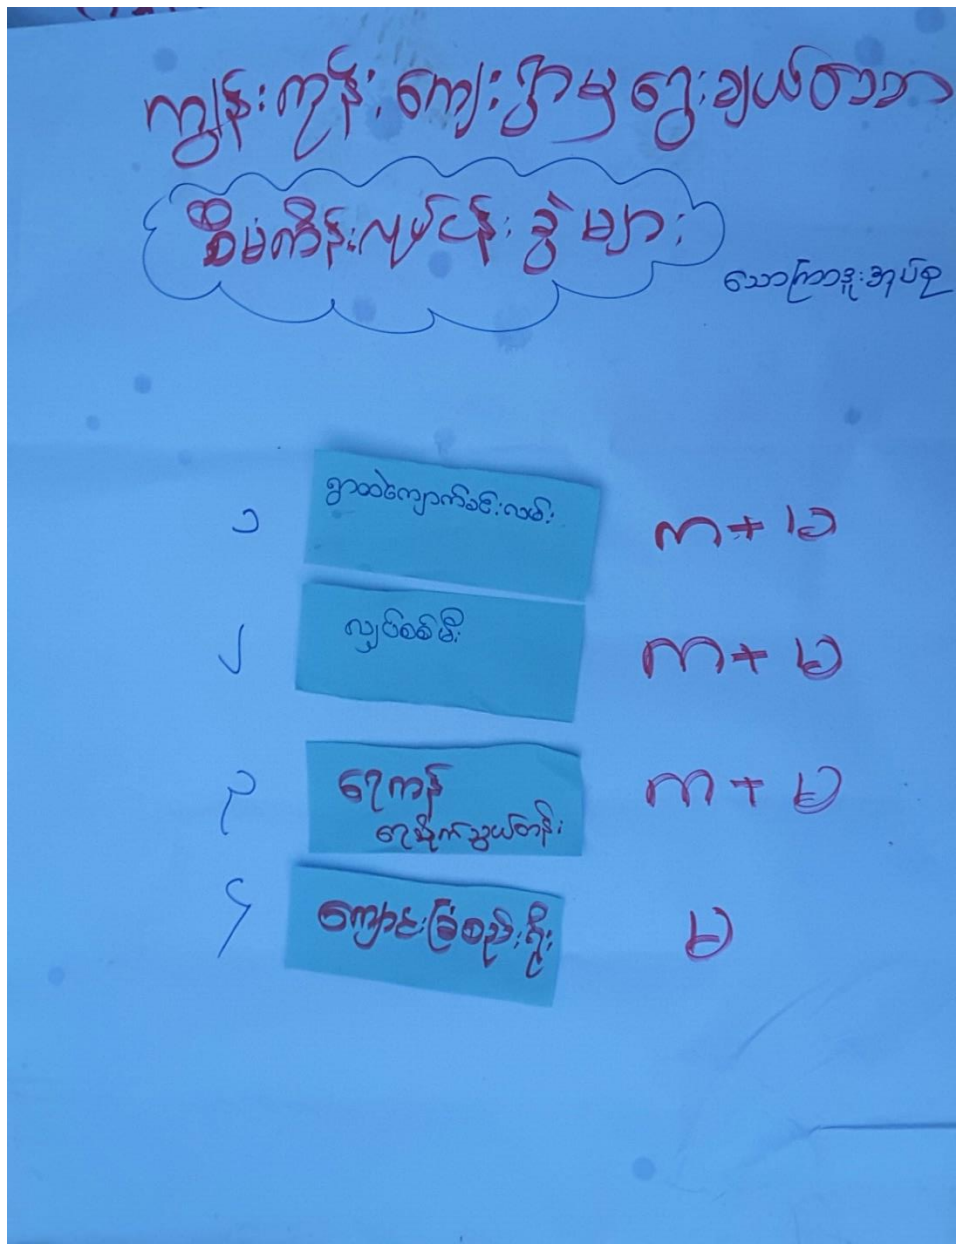 ကျွန်းကုန်း ကျေးရွာမှ ရွေးချယ်ထားသော
စီမံကိန်းလုပ်ငန်းခွဲများ
သော်ကြာဒူးအုပ်စု
၁ ရွာထဲကျောက်ခင်းလမ်း က + မ
၂ လျှပ်စစ်မီး က + မ
၃ ရေကန် က + မ
ရေပိုက်သွယ်တန်း
၄ ကျောင်းခြံစည်းရိုး မ